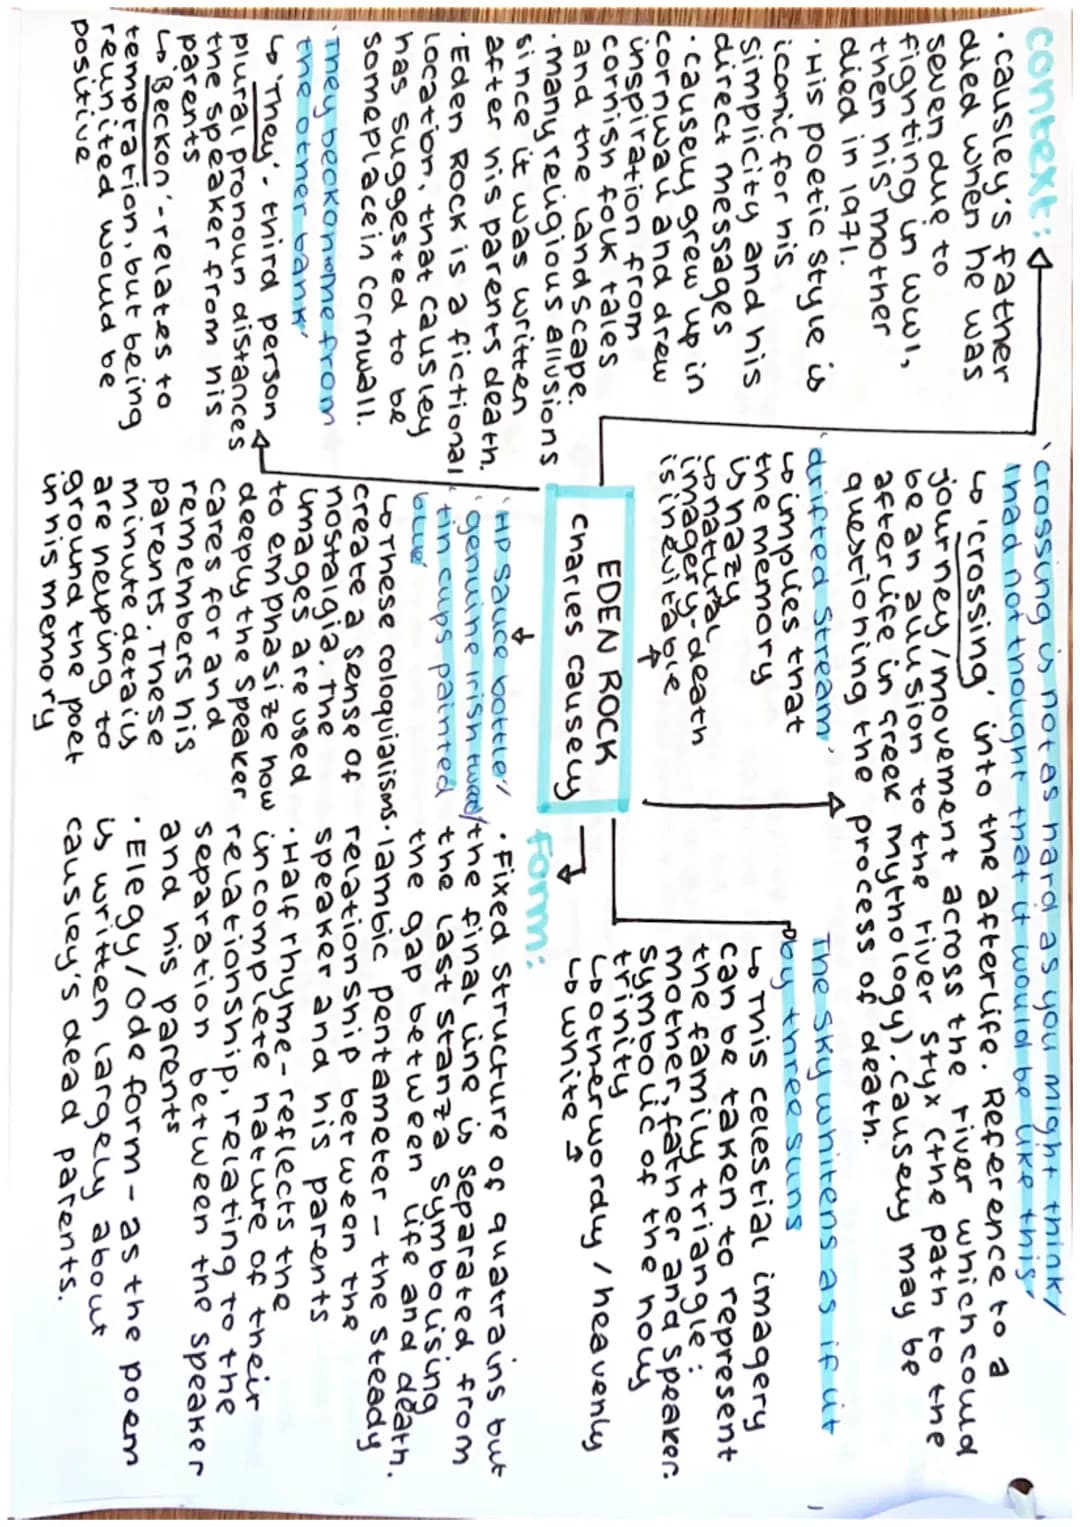 context:
· causley's father
died when he was
seven due to
fighting in WW1,
then his mother
died in 1971.
· His poetic style is
iconic for his
simplicity and his
direct messages
· causely grew up in
cornwall and drew
inspiration from
cornish folk tales
and the landscape.
· many religious allusions
since it was written
after his parents death.
· Eden Rock is a fictional
location, that causley
has suggested to be
someplace in cornwall.
'They beckon me from
the other bank'
↳ 'They' - third person
plural pronoun distances
the speaker from his
parents
↳ 'Beckon' - relates to
temptation, but being
reunited would be
positive
'crossing is not as hard as you might think/
I had not thought that it would be like this'
↳ 'crossing' into the afterlife. Reference to a
journey/movement across the river which could
be an allusion to the river Styx (the path to the
afterlife in greek mythology). causely may be
questioning the process of death.
'drifted stream'
↳ implies that
the memory
is hazy
↳ natural
imagery - death
is inevitable
The sky whitens as if lit
by three suns
↳ This celestial imagery
can be taken to represent
the family triangle:
mother, father and speaker.
symbolic of the holy
trinity
↳ otherwordly / heavenly
↳ white
EDEN ROCK
charles causely
'HP sauce bottle'/
'genuine irish tweed'/
'tin cups painted
blue'
↳ These colloquialisms
create a sense of
nostalgia. The
images are used
to emphasize how
deeply the speaker
cares for and
remembers his
parents. These
minute details
are helping to
ground the poet
in his memory
form:
· Fixed structure of quatrains but
the final line is separated from
the last stanza symbolising
the gap between life and death.
· Iambic pentameter - the steady
relationship between the
speaker and his parents
· Half rhyme - reflects the
incomplete nature of their
relationship, relating to the
separation between the speaker
and his parents
· Elegy/Ode form - as the poem
is written largely about
causley's dead parents.